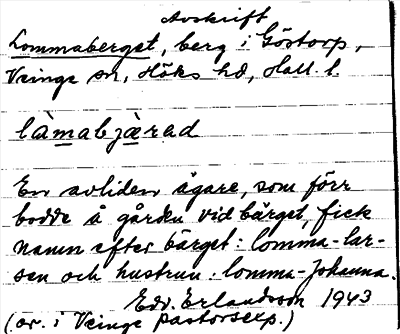 Avskrift
Lommaberget, berg i Göstorp,
Veinge sn, Höks hd, Hall. l.
làmabjæ̀rad
En avliden ägare, som förr
bodde å gården vid bärget, fick
namn efter bärget: Lomma-Lar-
sen och hustrun: Lomma-Johanna.
Edv. Erlandsson 1943
(or. i Veinge pastorsexp.)